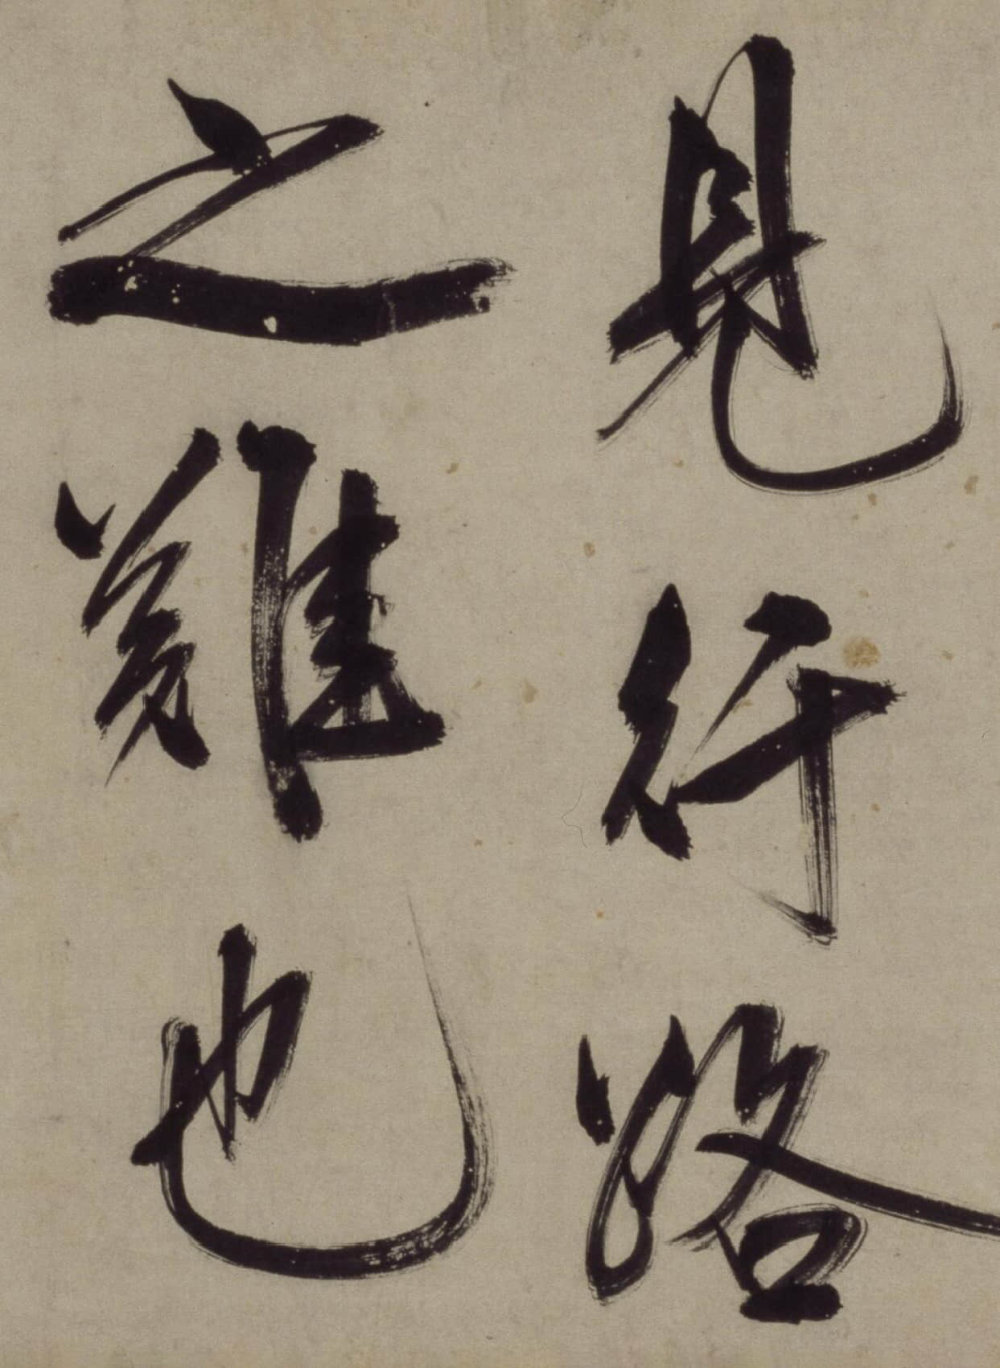 見行路
之難也